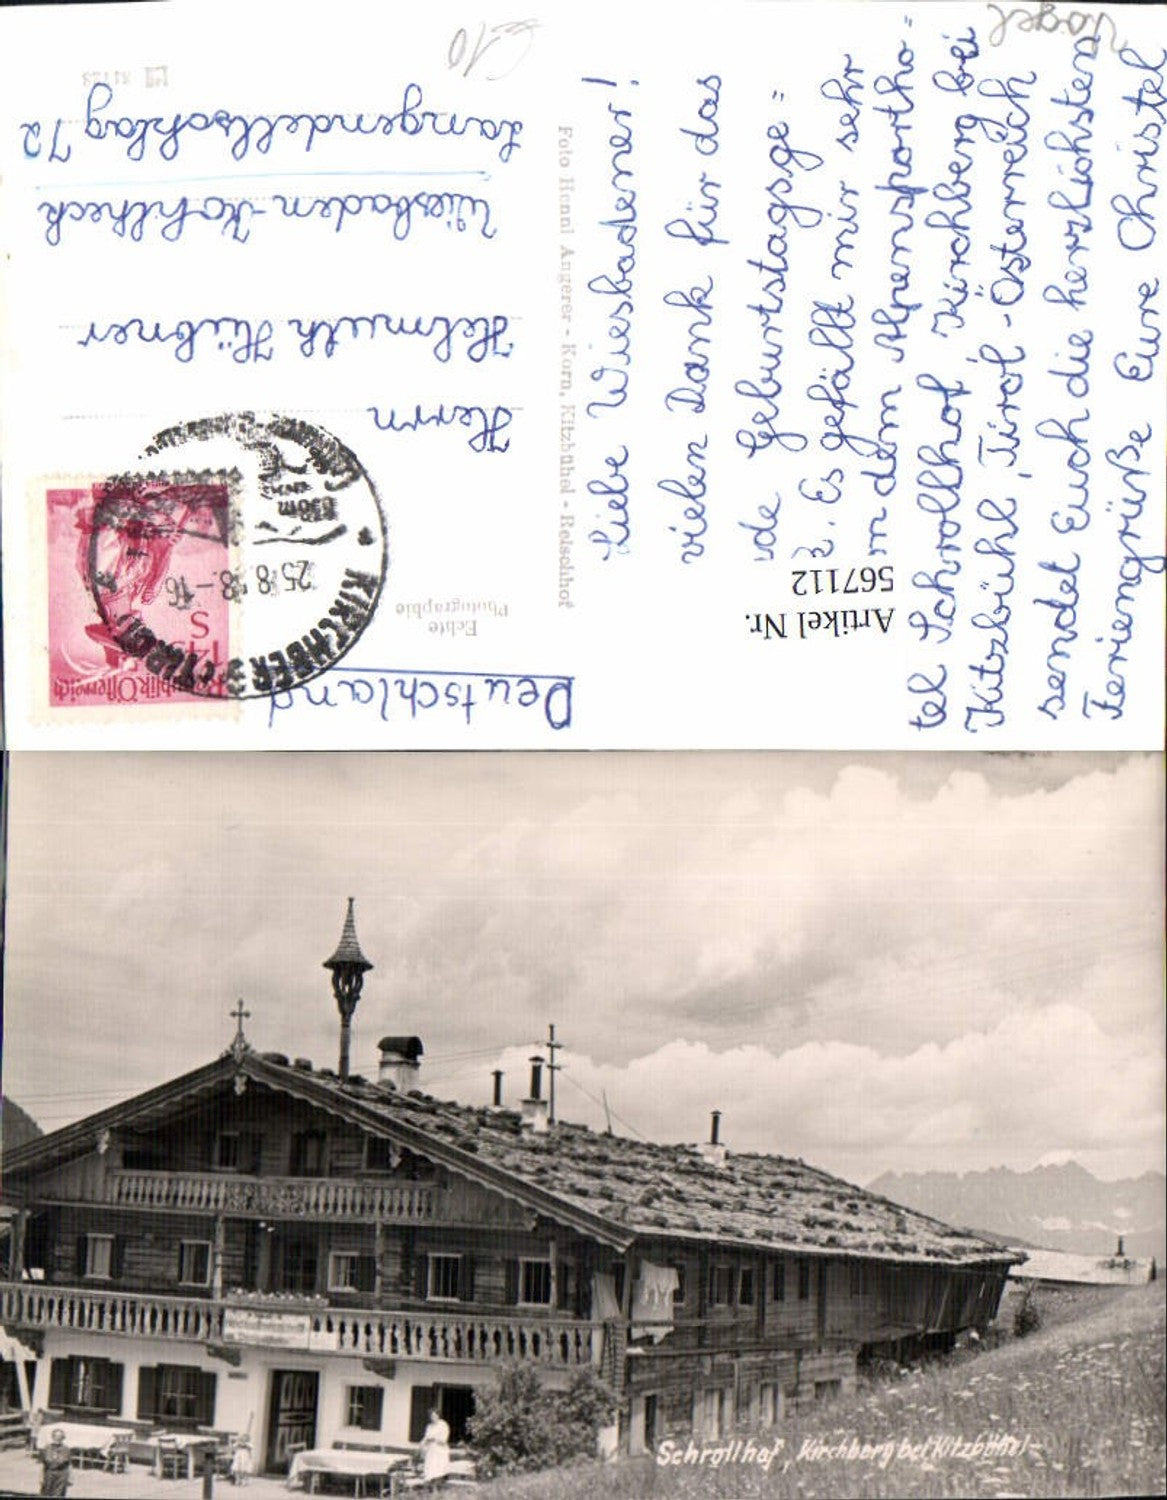 Vogel
€10
Liebe Wiesbadener!
vielen Dank für das
Geburtstagsge=
Es gefällt mir sehr
dem Alpensportho=
tel Schrollhof Kirchberg bei
Kitzbühl, Tirol-Österreich
sendet Euch die herzlichsten
Feriengrüße Eure Christel
Artikel Nr.
567112
Foto Henni Angerer - Korn, Kitzbühel - Reischhof
Echte
Photographie
Deutschland
Republik Österreich
S
KIRCHBERG (TIROL)
25.8.
-16
850m
Herrn
Helmuth Hübner
Wiesbaden-Kohlheck
Langendellschlag 72
Schrollhof, Kirchberg bei Kitzbühel-